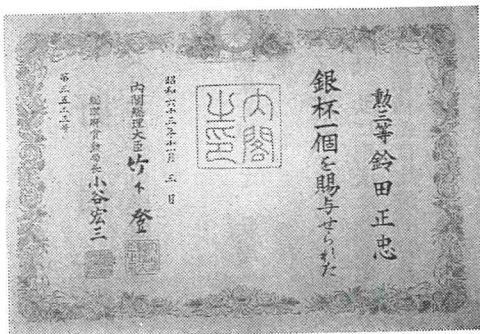 勲三等鈴田正忠
銀杯一個を賜与せられた
内閣之印
昭和六十三年十一月三日
内閣総理大臣竹下登
総理府賞勲局長小谷宏三